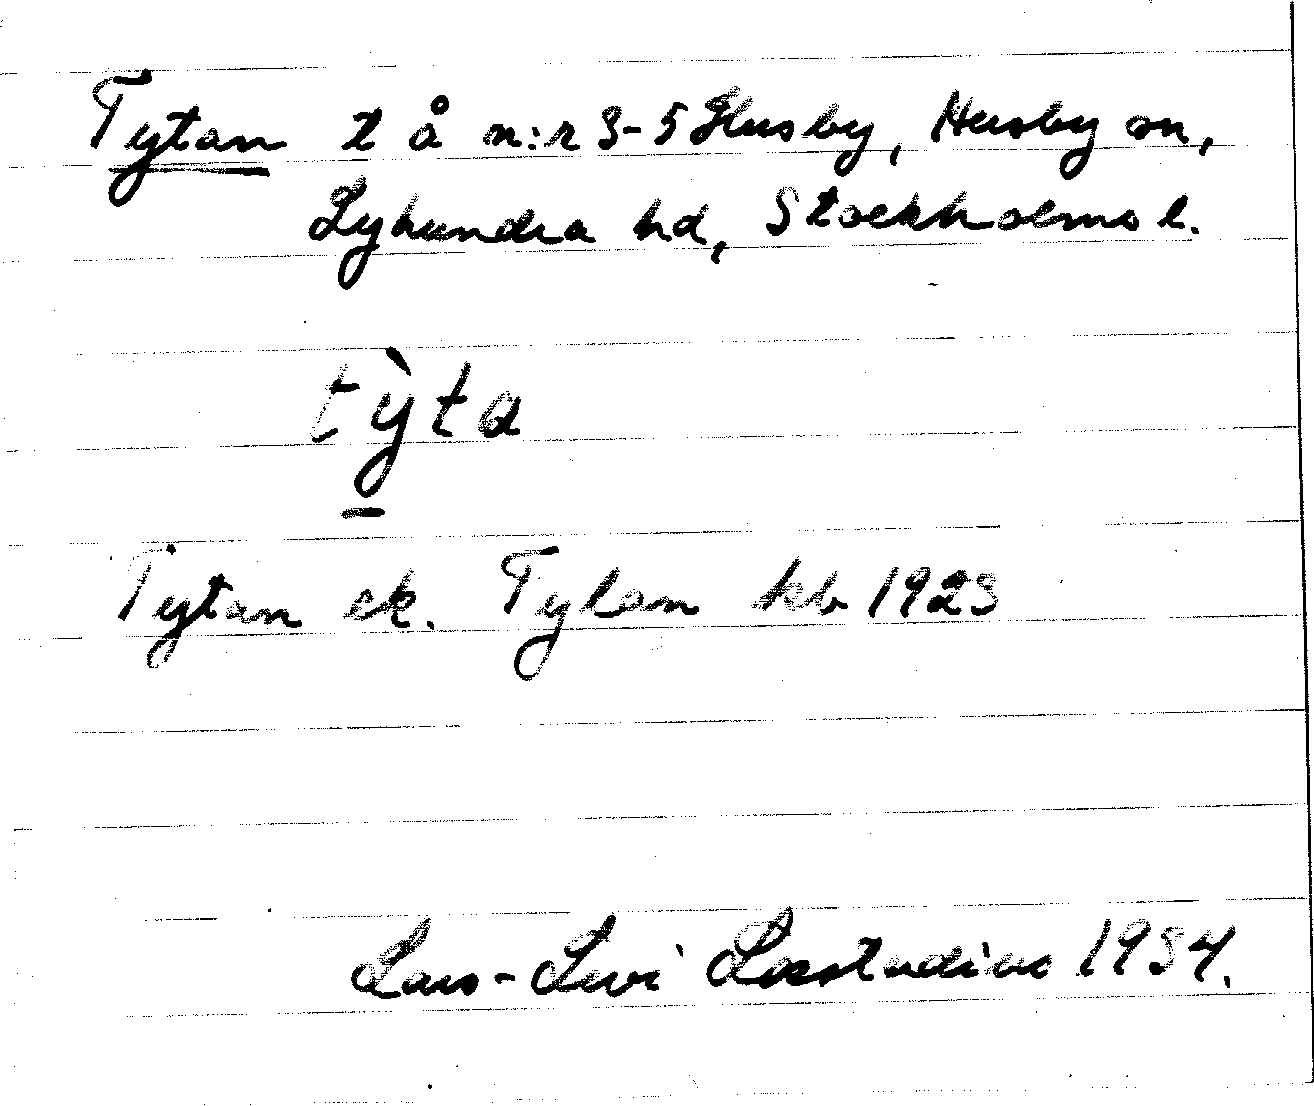 Tytan t å n:r 3-5 Husby, Husby sn,
Lyhundra hd, Stockholms l.
tỳta
Tytan ek. Tylan kb 1923
Lars-Levi Læstadius 1934.